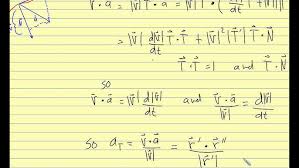 v⃗ · a⃗ = |v⃗| T⃗ · (
= |v⃗| d|v⃗|/dt T⃗ · T⃗ + |v⃗|² |T⃗'| T⃗ · N⃗
T⃗ · T⃗ = 1 and T⃗ · N⃗
so
v⃗ · a⃗ = |v⃗| d|v⃗|/dt and v⃗ · a⃗/|v⃗| = d|v⃗|/dt
so a_T = v⃗ · a⃗/|v⃗| = r⃗' · r⃗''/|r⃗'|